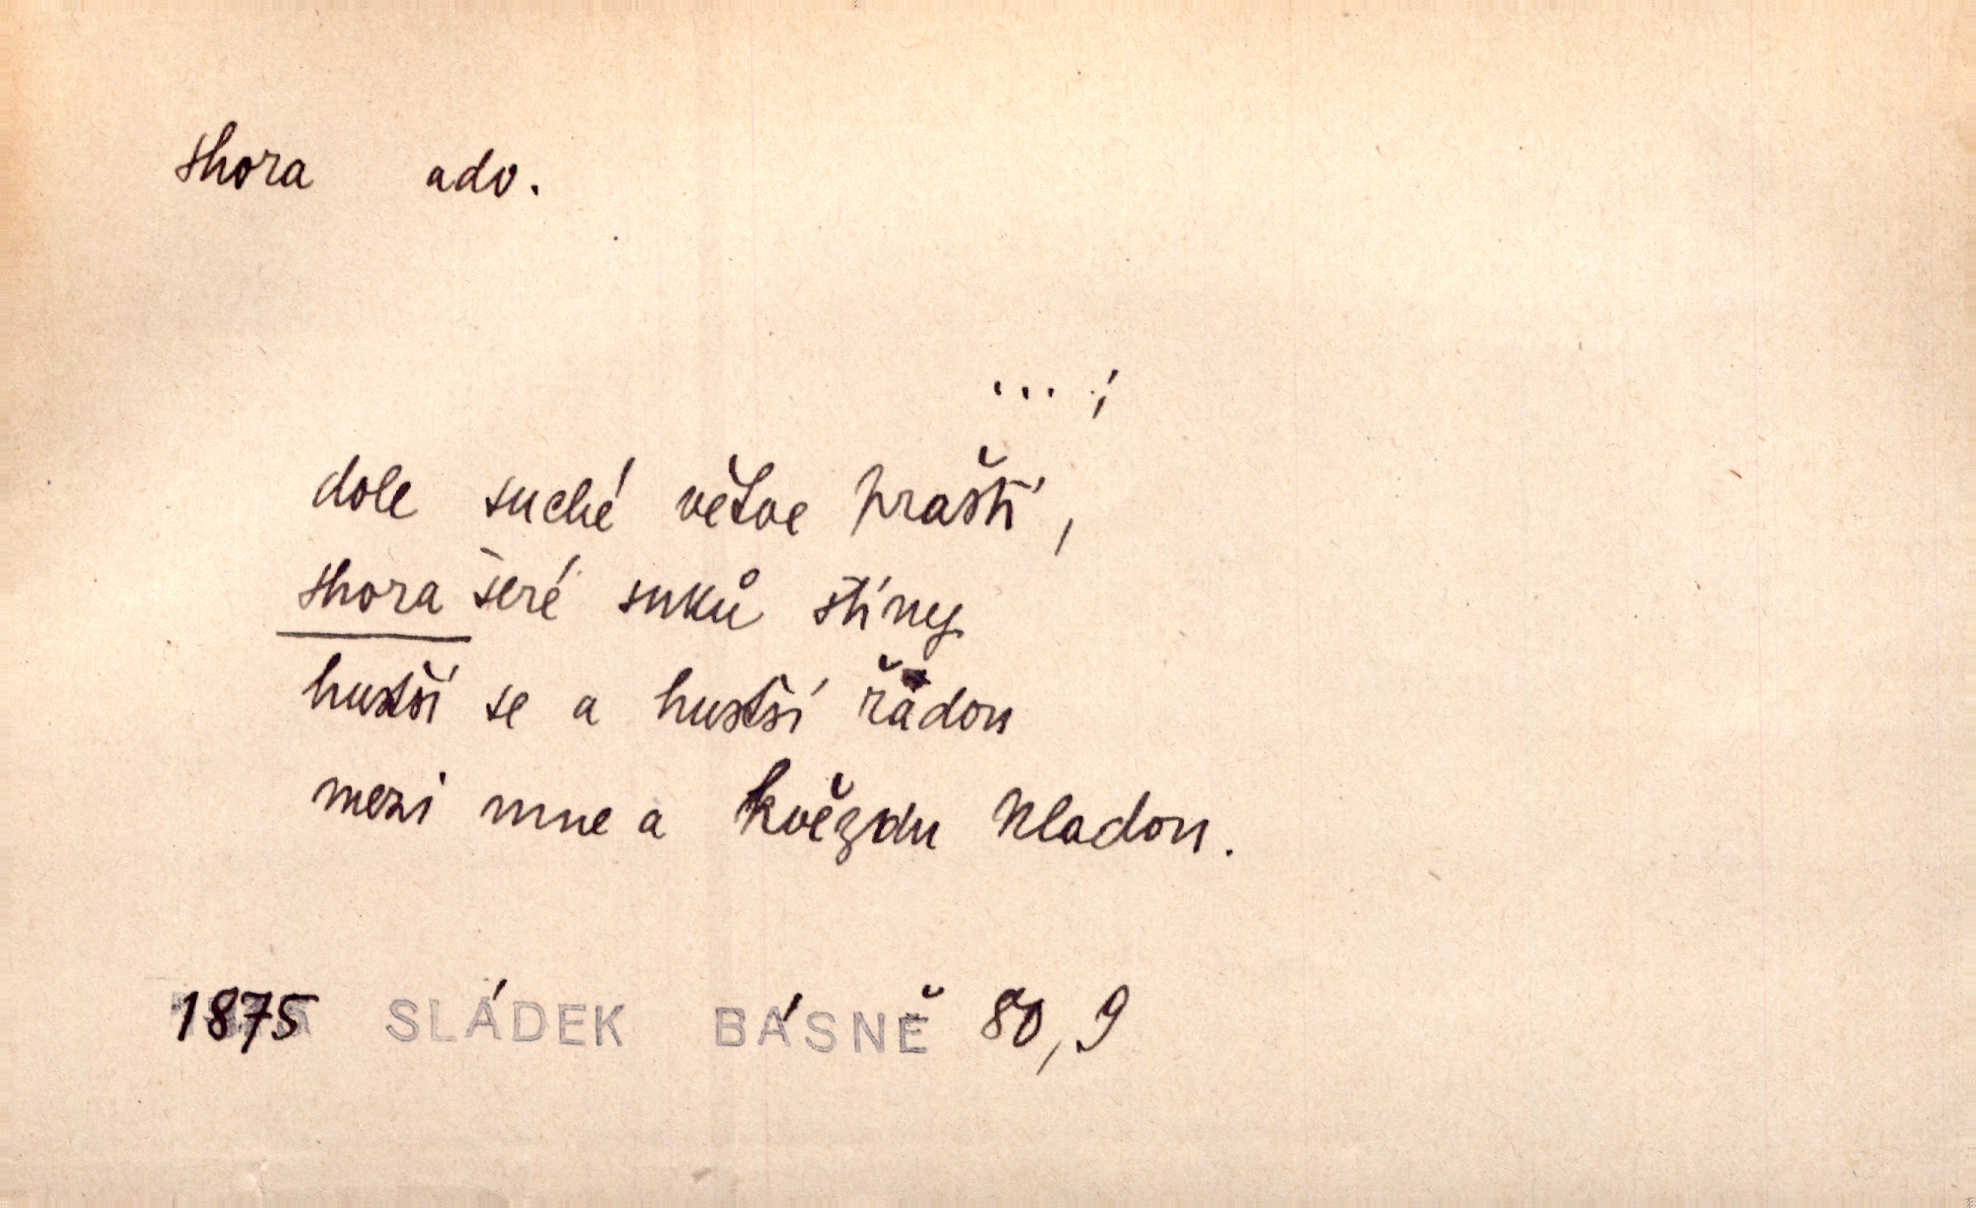 shora adv.
... ;
dole suché větve praští,
shora šeré suků stíny
hustší se a hustší řadou
mezi mne a hvězdu kladou.
1875 SLÁDEK BÁSNĚ 80,9